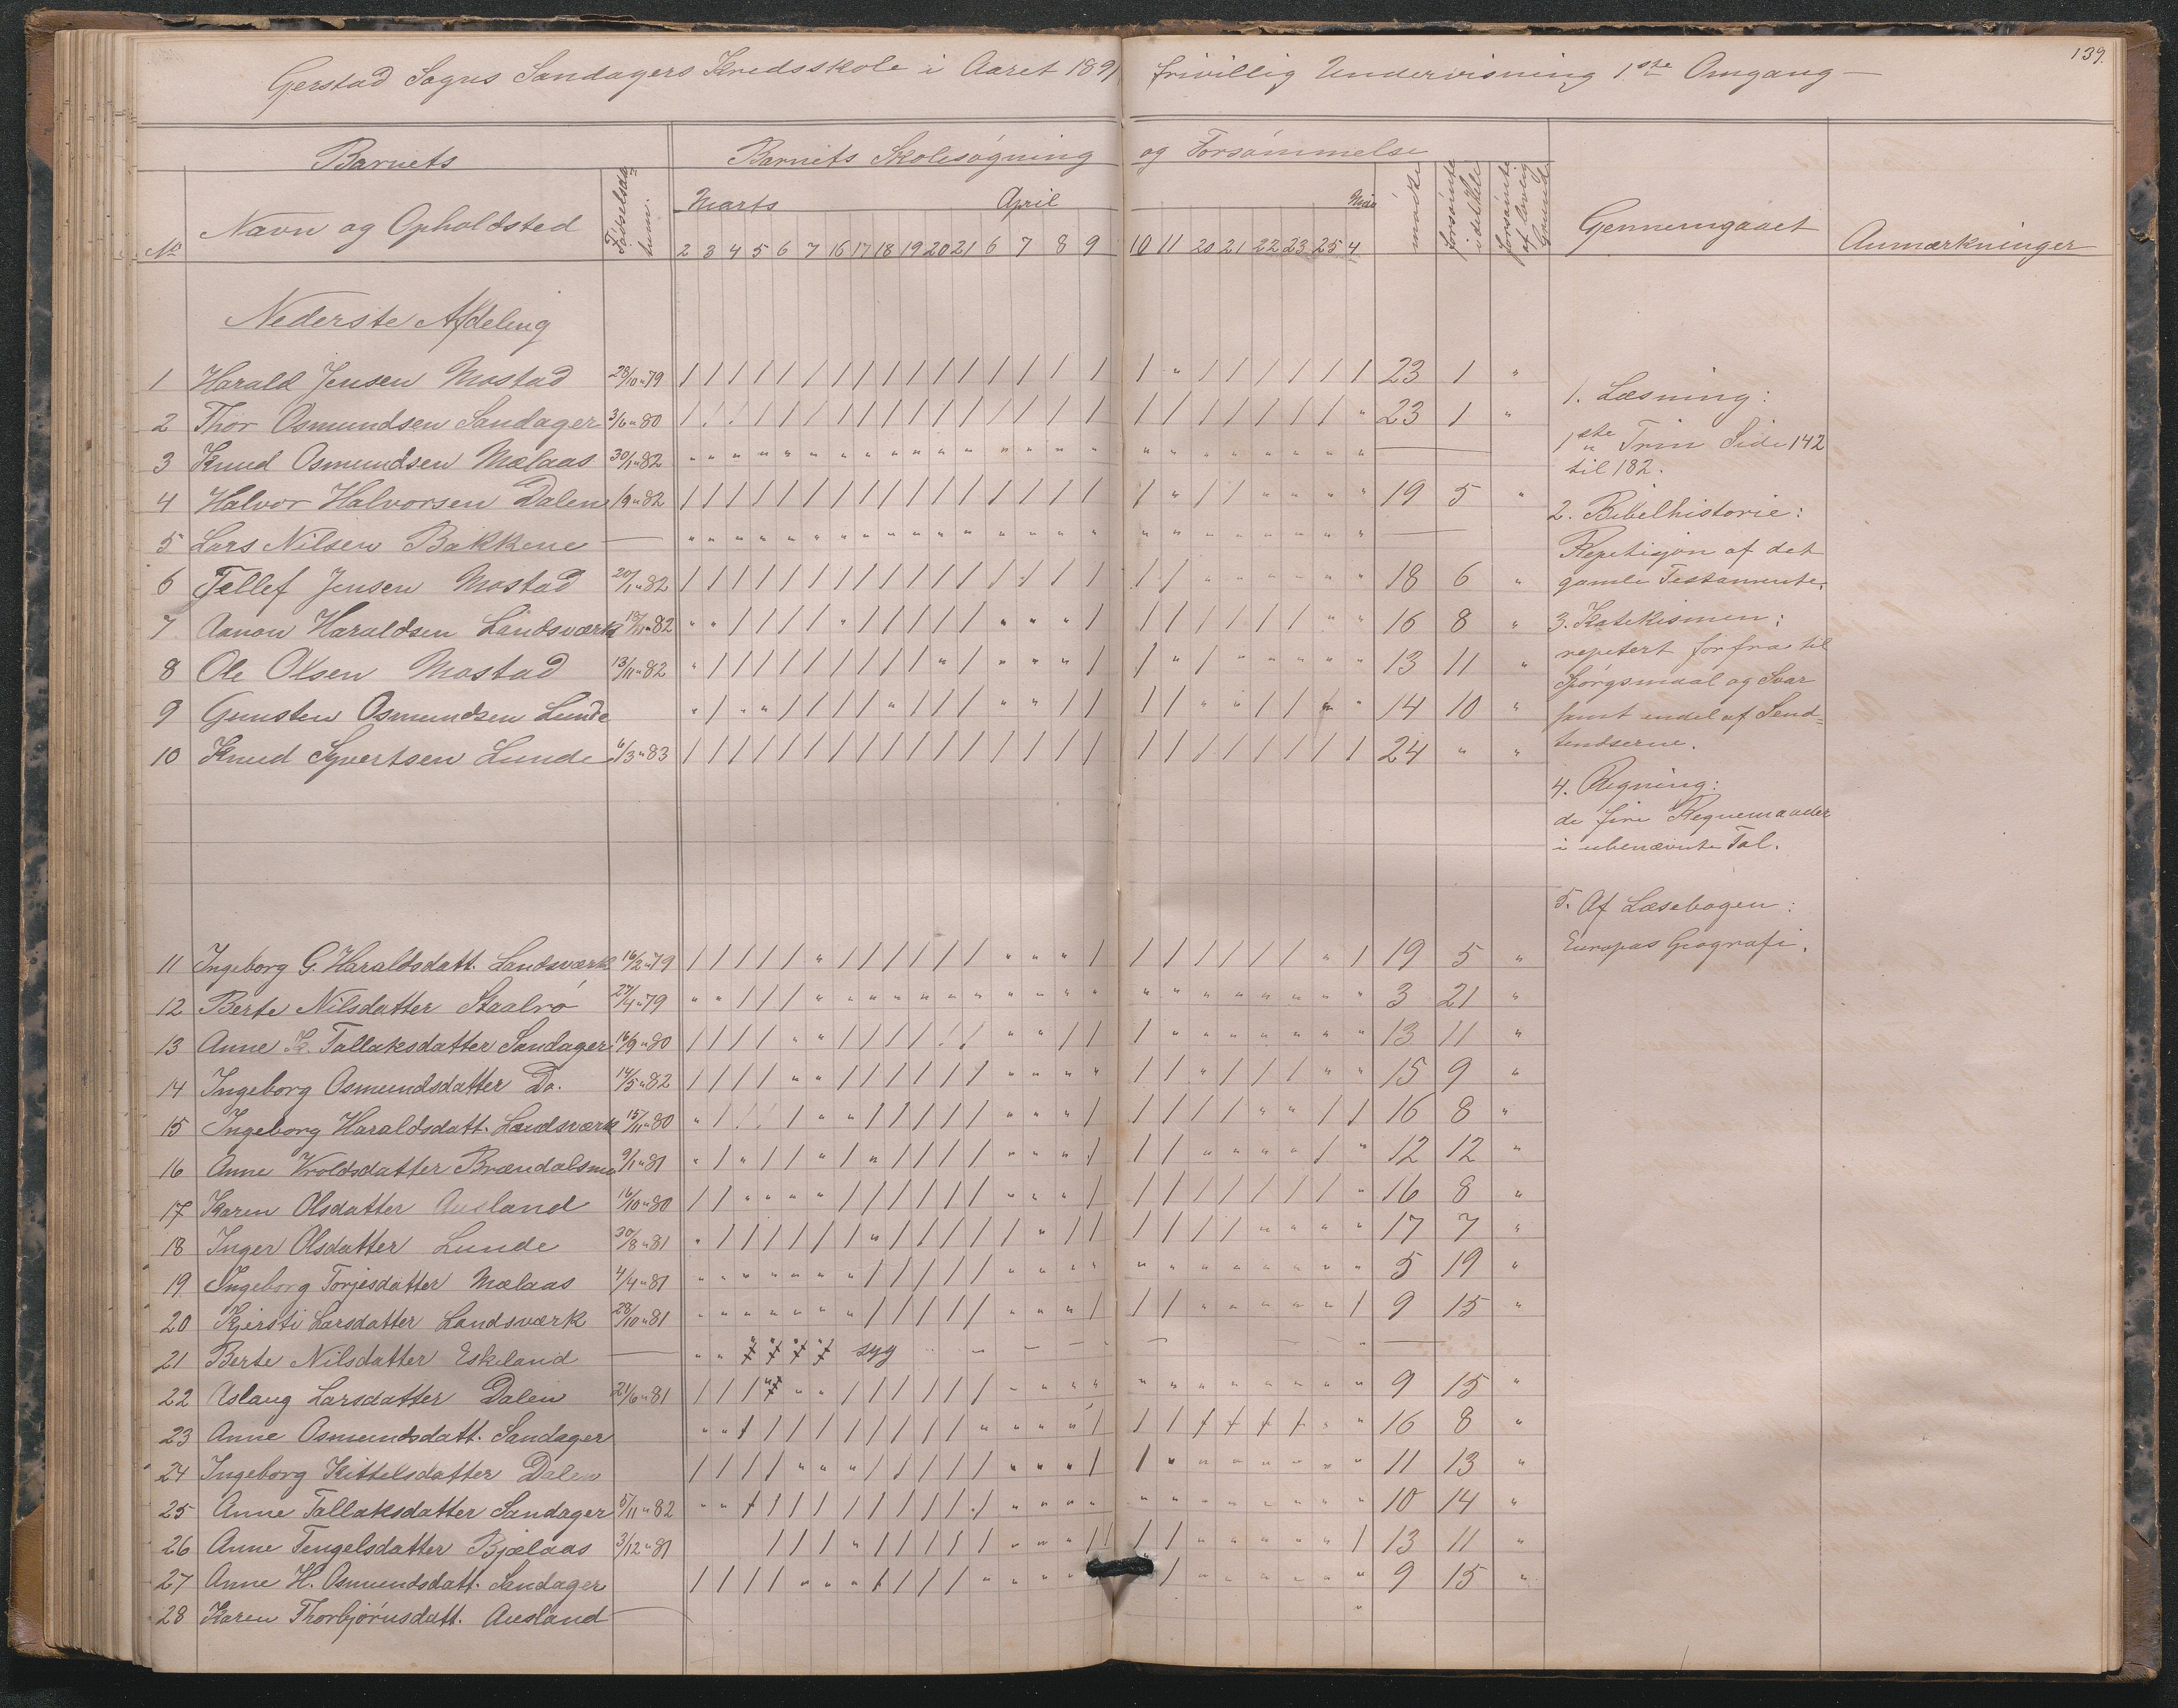 139.
Gerstad Sogns Sandagers Kredsskole i Aaret 1891 frivillig Undervisning 1.ste Omgang —
Barnets Barnets Skolesøgning og Forsømmelse
No Navn og Opholdsted Fødselsda- tum. Marts April Mai mødte forsømte i det Hele forsømte af lovlig Grund Gennemgaaet Anmærkninger
2 3 4 5 6 7 16 17 18 19 20 21 6 7 8 9 10 11 20 21 22 23 25 4
Nederste Afdeling
1 Harald Jensen Mostad 28/10 " 79 / / / / / / / / / / / / / / / / / " / / / / / / 23 1 "
2 Thor Osmundsen Sandager 3/6 " 80 / / / / / / / / / / / / / / / / / / / / / / / " 23 1 "
3 Knud Osmundsen Mælaas 30/1 " 82 " " " " " " " " " " " " " " " " " " " " " " " " —
4 Halvor Halvorsen Dalen 1/9 " 82 / / / / / / / / / / / / / / / / / " / / " " " " 19 5 "
5 Lars Nilsen Bakkene — " " " " " " " " " " " " " " " " " " " " " " " " —
6 Tellef Jensen Mostad 20/1 " 82 / / / / / / / / / / / / / / / / / / " " " " " " 18 6 "
7 Aanon Haraldsen Landsværk " 82 " " / / / / " / / / / / " " " / / / / / / / " " 16 8 "
8 Ole Olsen Mostad 13/11 " 82 " / / / / / / / / / " / " " " / / " / " " " " " 13 11 "
9 Gunsten Osmundsen Lunde " / " " / / / / " / / / " " / / / / " " / / " " 14 10 "
10 Knud Syvertsen Lunde 6/3 " 83 / / / / / / / / / / / / / / / / / / / / / / / / 24 " "
11 Ingeborg G. Haraldsdatt. Landsværk 16/2 " 79 / / / / / " / / / / / / " " " / / / / / / / " / 19 5 "
12 Berte Nilsdatter Staalrø 27/4 " 79 " " / / / " " " " " " " " " " " " " " " " " " " 3 21 "
13 Anne K. Tallaksdatter Sandager 16/9 " 80 / / / / " " / / / / / / " " / / / " " " " " " " 13 11 "
14 Ingeborg Osmundsdatter Do. 14/5 " 82 / / / / " " / / / / / / " " " " / / " / / / " " 15 9 "
15 Ingeborg Haraldsdatt. Landsværk 15/11 " 80 " / / / / " " / / / / / " " " / / / / / " " / / 16 8 "
16 Anne Vroldsdatter Brændalsmo 9/1 " 81 " / " / / " / " / / / / " " " / / / " " " " / " 12 12 "
17 Karen Olsdatter Ausland 16/10 " 80 / / " " " " / / / / / / " " " / / / / / / / / " 16 8 "
18 Inger Olsdatter Lunde 30/8 " 81 " / / / / / / " / / / / / " / / / / / / " " " " 17 7 "
19 Ingeborg Torjesdatter Mælaas 4/4 " 81 " " " " " " " / / / / / " " " " " " " " " " " " 5 19 "
20 Kjersti Larsdatter Landsværk 28/10 " 81 " " " " " " " / / / / / " " " / / / " " " " " / 9 15 "
21 Berte Nilsdatter Eskeland — " " syg —
22 Aslaug Larsdatter Dalen 21/6 " 81 / / / " " " / / / / / / " " " " " " " " " " " " 9 15 "
23 Anne Osmundsdatt. Sandager " " / / / / / / / / / " " " " / / / / / / / " " 16 8 "
24 Ingeborg Kittelsdatter Dalen / / / / " " " / / / / / " " " / / " " " " " " " 11 13 "
25 Anne Tallaksdatter Sandager 5/11 " 82 " " / / / / / / / / / / " " " " " " " " " " " " 10 14 "
26 Anne Tengelsdatter Bjælaas 3/12 " 81 / / / " / / / / / " " " / / / / " " " " " / 13 11 "
27 Anne H. Osmundsdatt. Sandager / / / / " " " / / / / " " " " / " " " " " " 9 15 "
28 Karen Thorbjørnsdatt. Ausland — "
1. Læsning:
1ste Trin Side 142
til 182.
2. Bibelhistorie:
Repetisjon af det
gamle Testamente.
3. Katekismen:
repetert forfra til
Spørgsmaal og Svar
samt endel af Send-
tendserne.
4. Regning:
de fire Regnemaader
i ubenævnte Tal.
5. Af Læsebogen:
Europas Geografi.